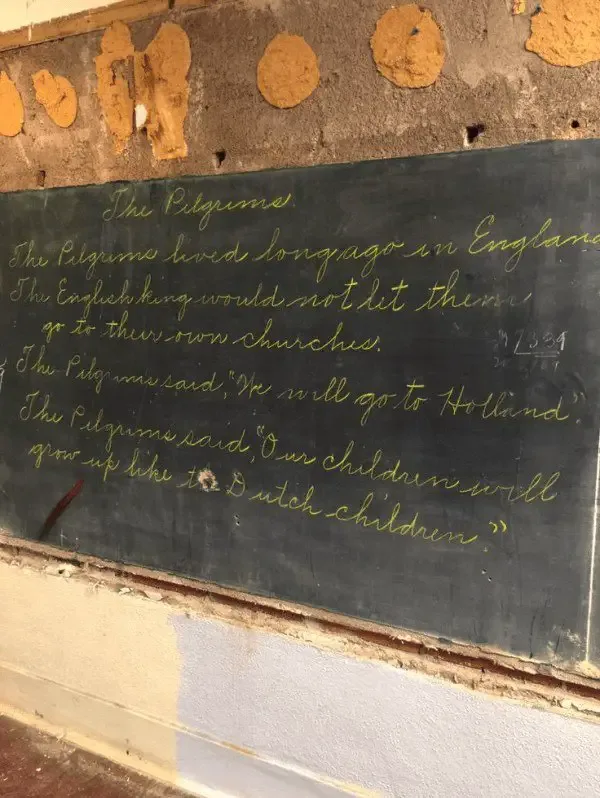 The Pilgrims
The Pilgrims lived long ago in England
The English king would not let them
go to their own churches.
The Pilgrims said, "We will go to Holland."
The Pilgrims said, "Our children will
grow up like to Dutch children."